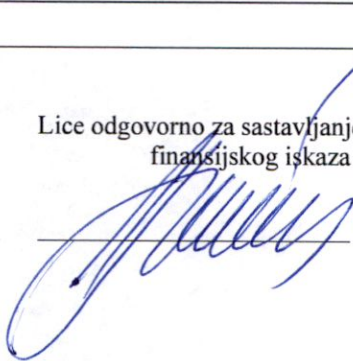 Lice odgovorno za sastavljanje
finansijskog iskaza